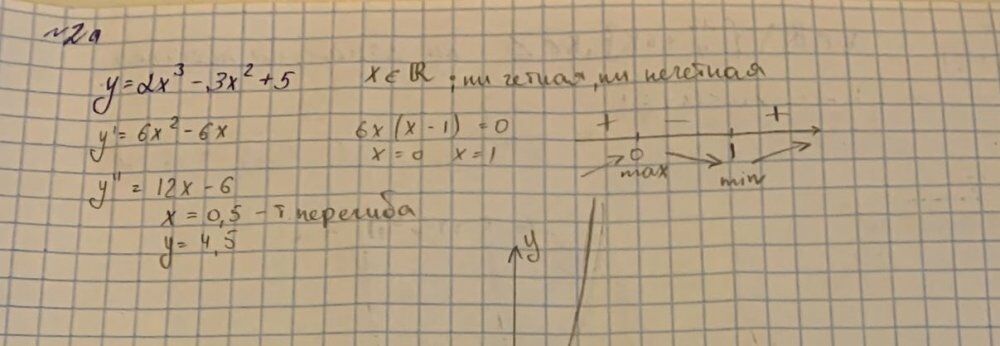 ~2a
y=2x³-3x²+5 x∈ℝ ; ни четная, ни нечетная
y'=6x²-6x 6x(x-1)=0 + - +
x=0 x=1 0 1
max min
y''=12x-6
x=0,5 - т перегиба
y=4,5
y